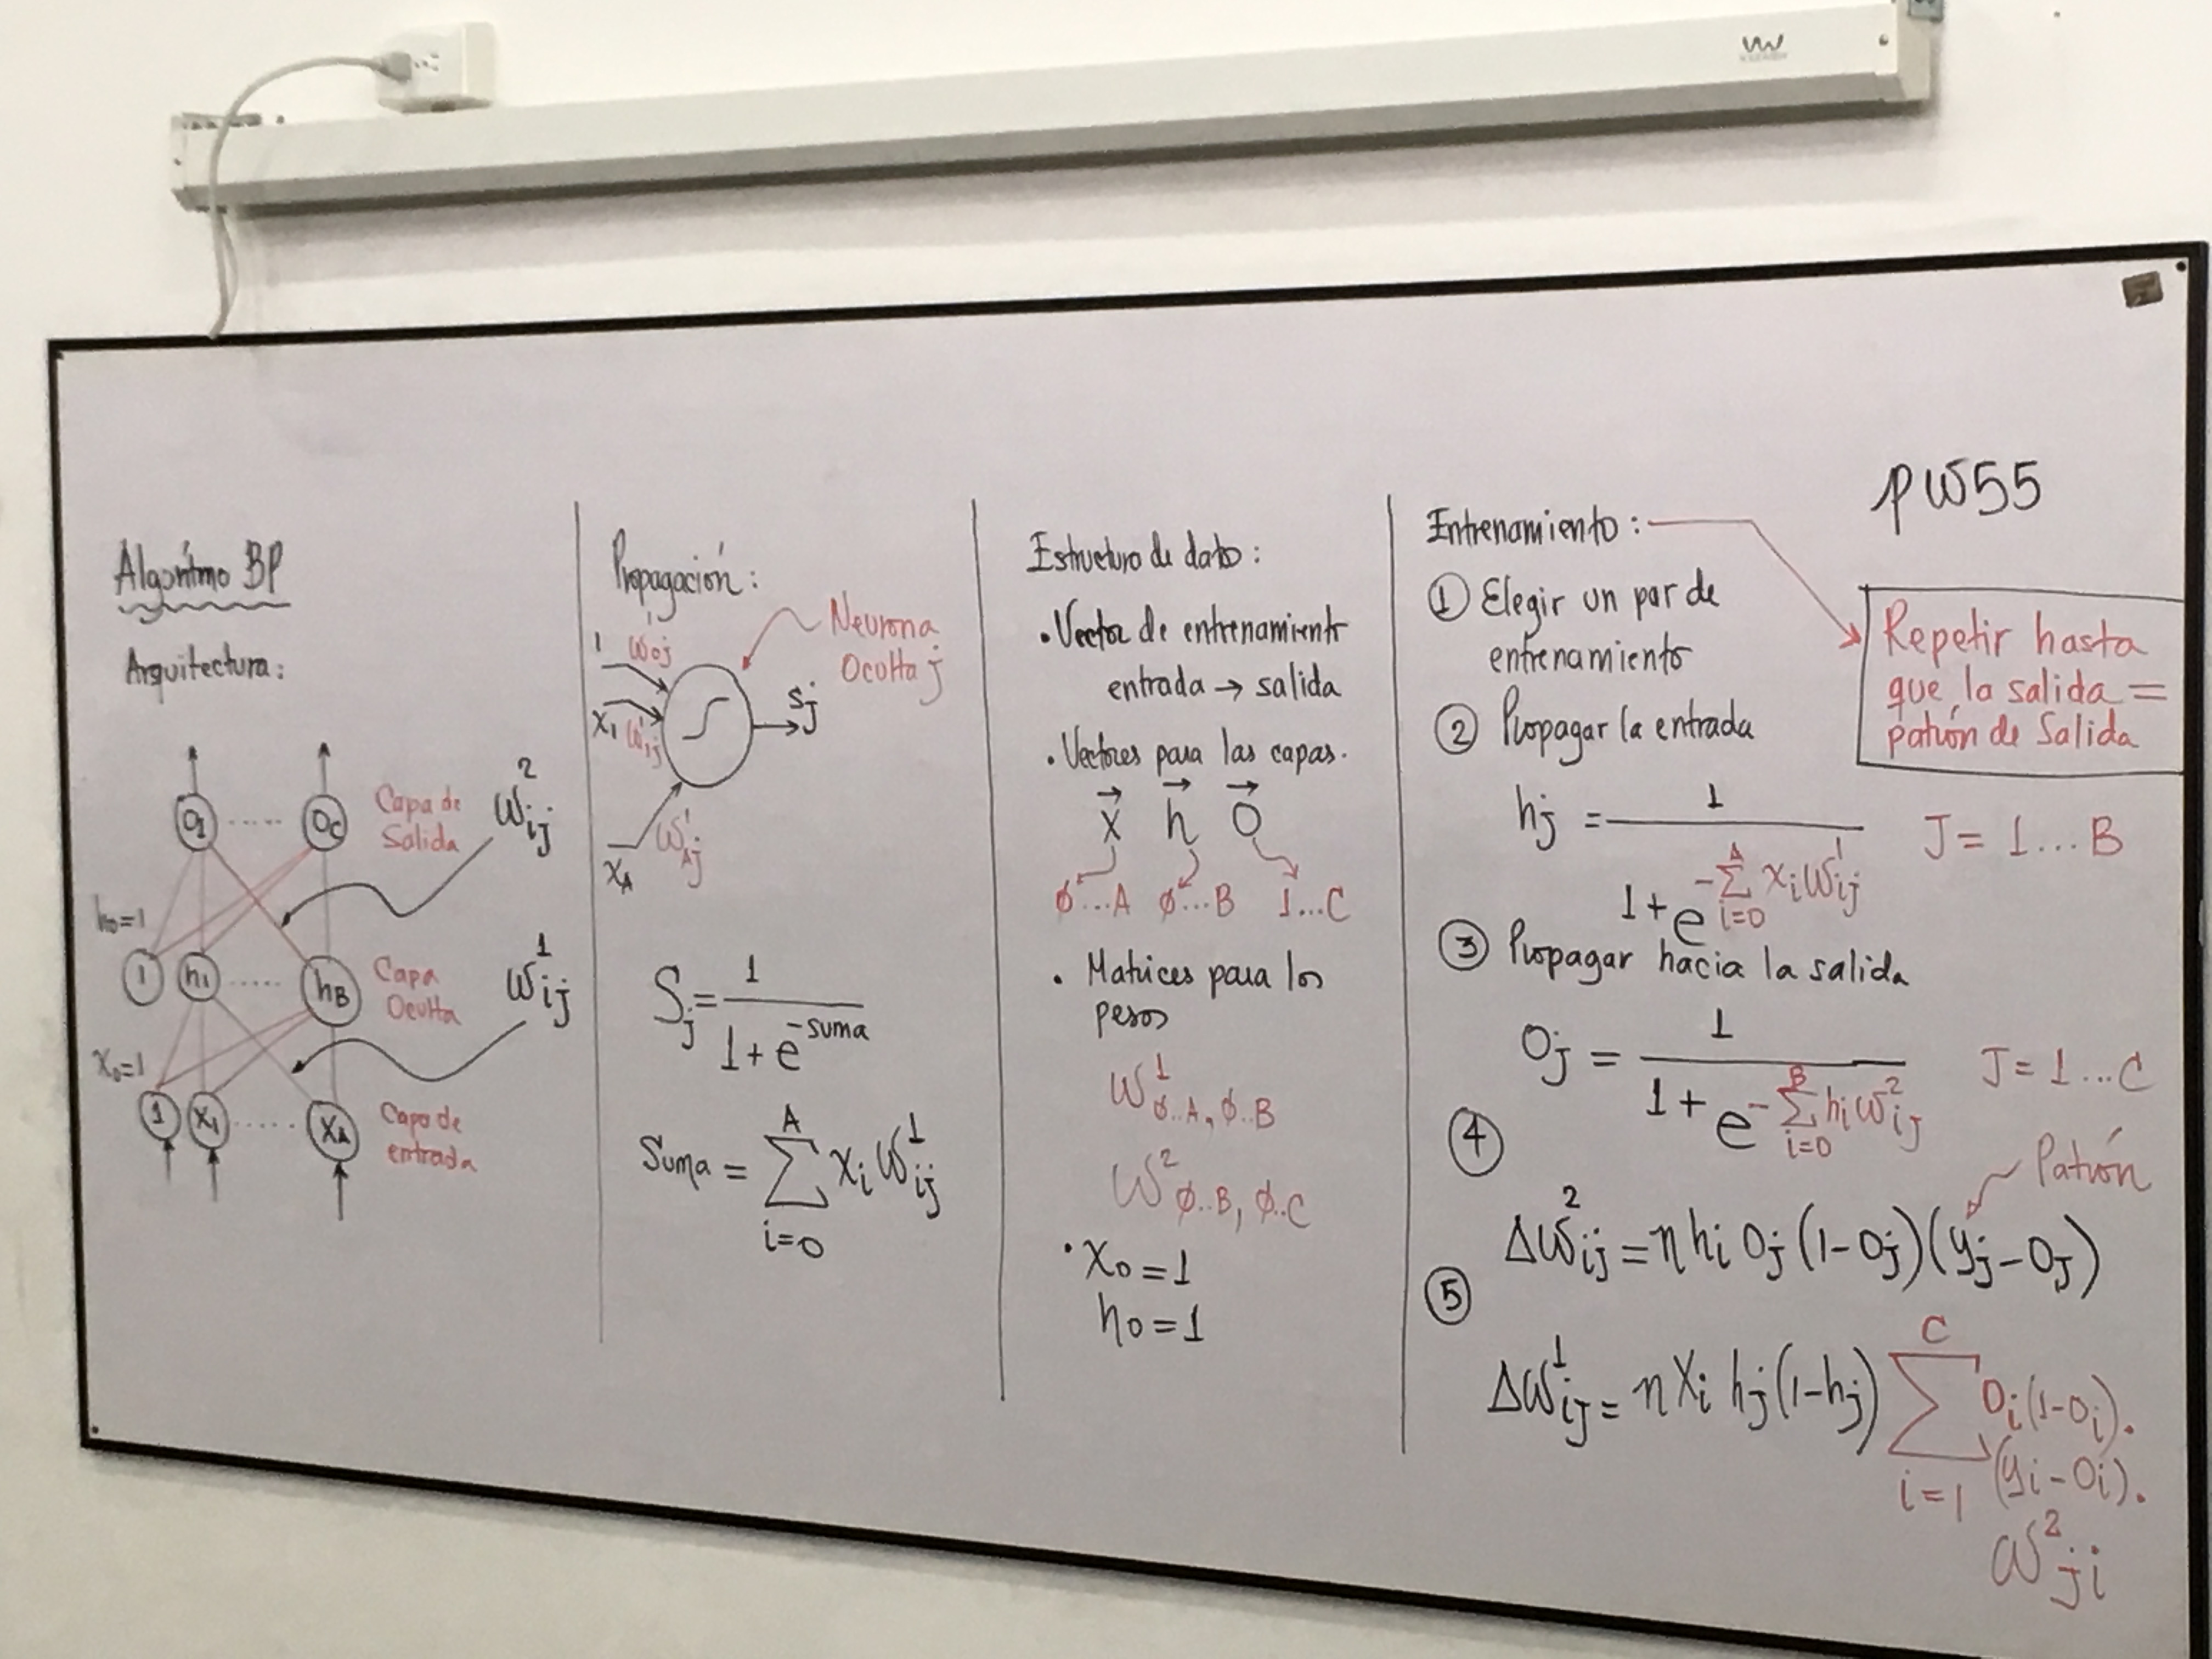 Algoritmo BP
Arquitectura:
O1 ..... OC
Capa de
Salida
W²ij
h0=1
1 h1 ..... hB
Capa
Oculta
W¹ij
X0=1
1 X1 ..... XA
Capa de
entrada
Propagación:
Neurona
Oculta j
1 W¹0j
X1 W¹1j
Sj
XA W¹Aj
Sj = 1 / (1 + e^-suma)
Suma = Σ(i=0..A) xi W¹ij
Estructura de dato:
• Vector de entrenamiento
entrada → salida
• Vectores para las capas.
X⃗ h⃗ O⃗
∅...A ∅...B 1...C
• Matrices para los
pesos
W¹ ∅..A, ∅..B
W² ∅..B, ∅..C
• X0 = 1
h0 = 1
pw55
Entrenamiento:
① Elegir un par de
entrenamiento
Repetir hasta
que la salida =
patrón de Salida
② Propagar la entrada
hj = 1 / (1 + e^-Σ(i=0..A) xi W¹ij) J = 1...B
③ Propagar hacia la salida
Oj = 1 / (1 + e^-Σ(i=0..B) hi W²ij) J = 1...C
④
Patrón
ΔW²ij = η hi Oj (1-Oj)(yj-OJ)
⑤
ΔW¹ij = η Xi hj(1-hj) Σ(i=1..C) Oi(1-Oi).
(yi-Oi).
W²ji